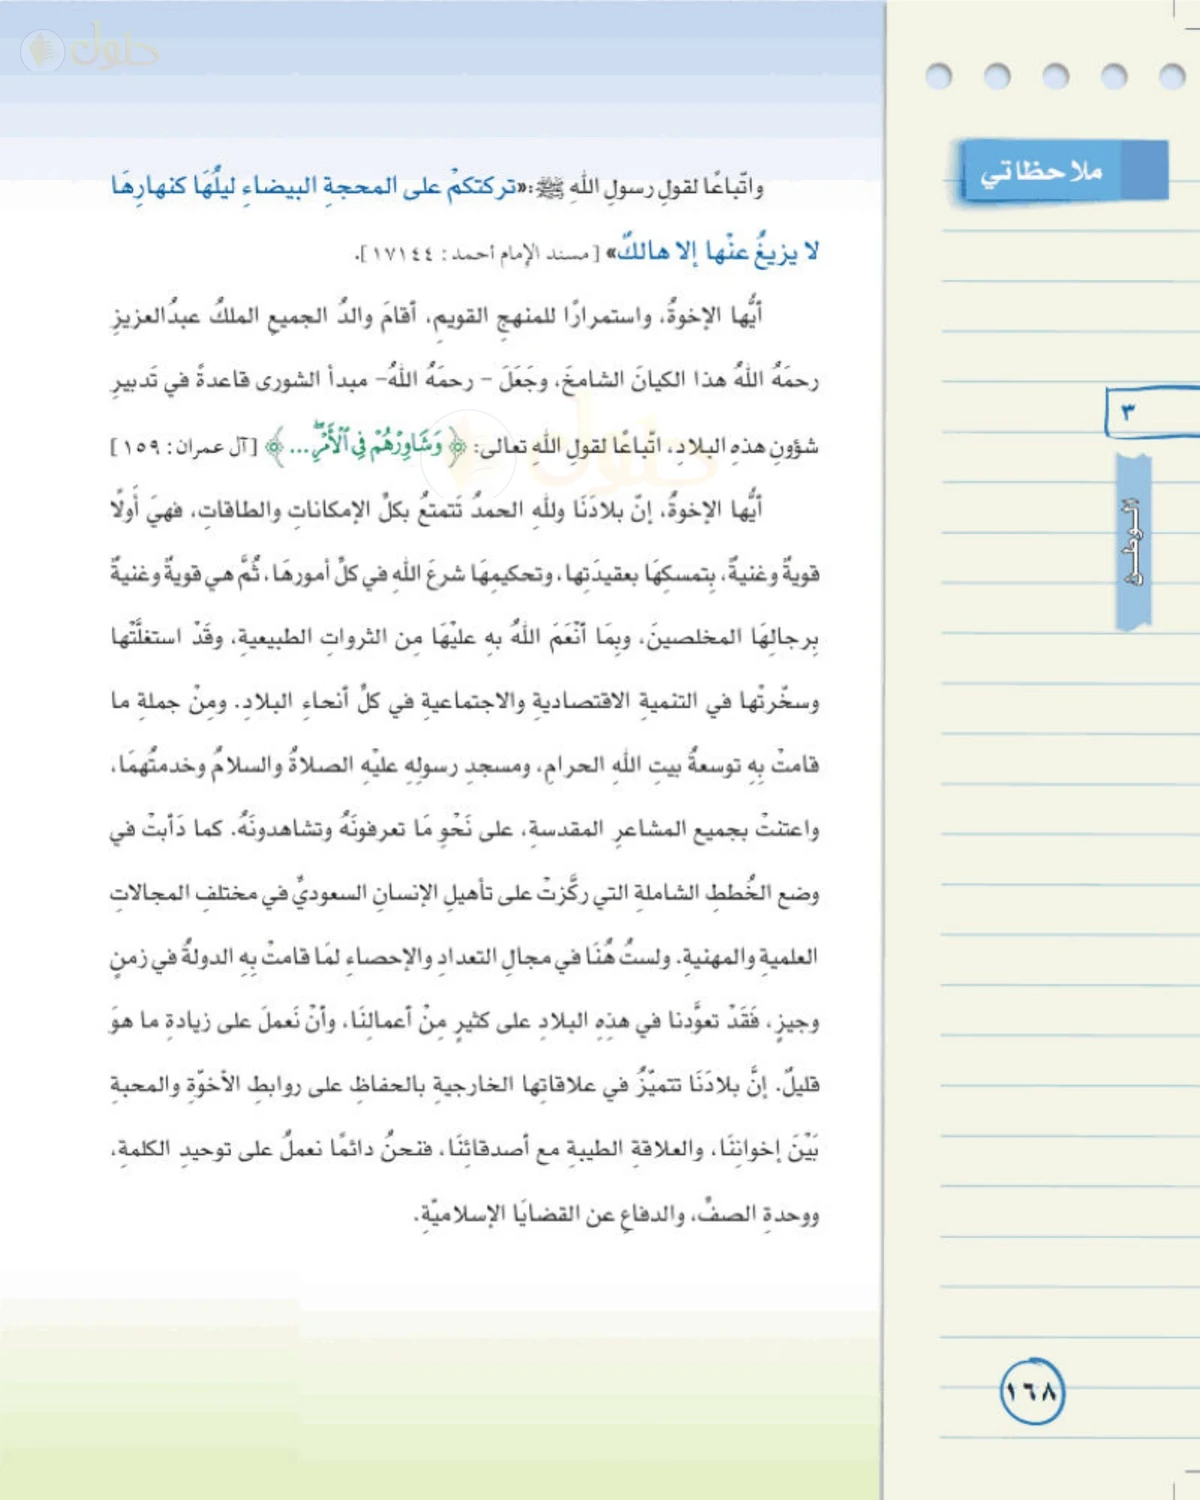 حلول
ملاحظاتي
واتّباعًا لقولِ رسولِ اللهِ ﷺ:«تركتكمْ على المحجةِ البيضاءِ ليلُهَا كنهارِهَا
لا يزيغُ عنْها إلا هالكٌ» [مسند الإمام أحمد: ١٧١٤٤].
أيُّها الإخوةُ، واستمرارًا للمنهجِ القويمِ، أقامَ والدُ الجميعِ الملكُ عبدُالعزيزِ
رحمَهُ اللهُ هذا الكيانَ الشامخَ، وجَعَلَ - رحمَهُ اللهُ- مبدأ الشورى قاعدةً في تَدبيرِ
شؤونِ هذهِ البلادِ، اتّباعًا لقولِ اللهِ تعالى: ﴿ وَشَاوِرْهُمْ فِي ٱلْأَمْرِ ... ﴾ [آل عمران: ١٥٩]
أيُّها الإخوةُ، إنّ بلادَنَا وللهِ الحمدُ تَتمتعُ بكلِّ الإمكاناتِ والطاقاتِ، فهيَ أَولًا
قويةٌ وغنيةٌ، بِتمسكِهَا بعقيدَتِها، وتحكيمِهَا شرعَ اللهِ في كلِّ أمورهَا، ثُمَّ هي قويةٌ وغنيةٌ
بِرجالِهَا المخلصينَ، وبِمَا أنْعَمَ اللهُ بهِ عليْهَا مِن الثرواتِ الطبيعيةِ، وقَدْ استغلَّتْها
وسخّرتْها في التنميةِ الاقتصاديةِ والاجتماعيةِ في كلِّ أنحاءِ البلادِ. ومِنْ جملةِ ما
قامتْ بِهِ توسعةُ بيتِ اللهِ الحرامِ، ومسجدِ رسولِهِ عليْهِ الصلاةُ والسلامُ وخدمتُهمَا،
واعتنتْ بجميعِ المشاعرِ المقدسةِ، على نَحْوِ مَا تعرفونَهُ وتشاهدونَهُ. كما دَأبتْ في
وضع الخُططِ الشاملةِ التي ركَّزتْ على تأهيلِ الإنسانِ السعوديِّ في مختلفِ المجالاتِ
العلميةِ والمهنيةِ. ولستُ هُنَا في مجالِ التعدادِ والإحصاءِ لمَا قامتْ بِهِ الدولةُ في زمنٍ
وجيزٍ، فَقَدْ تعوَّدنا في هذِهِ البلادِ على كثيرٍ مِنْ أعمالِنَا، وأنْ نَعملَ على زيادةِ ما هوَ
قليلٌ. إنَّ بلادَنَا تتميّزُ في علاقاتِها الخارجيةِ بالحفاظِ على روابطِ الأخوّةِ والمحبةِ
بَيْنَ إخوانِنَا، والعلاقةِ الطيبةِ مع أصدقائنَا، فنحنُ دائمًا نعملُ على توحيدِ الكلمةِ،
ووحدةِ الصفِّ، والدفاعِ عن القضايَا الإسلاميّةِ.
٣
الوطن
١٦٨